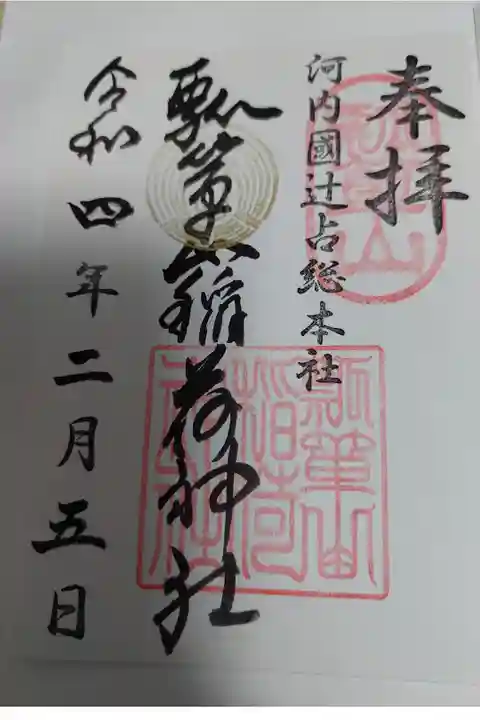 奉拝
河内國辻占総本社
瓢箪山稲荷神社
令和四年二月五日
瓢箪山
稲荷
神社